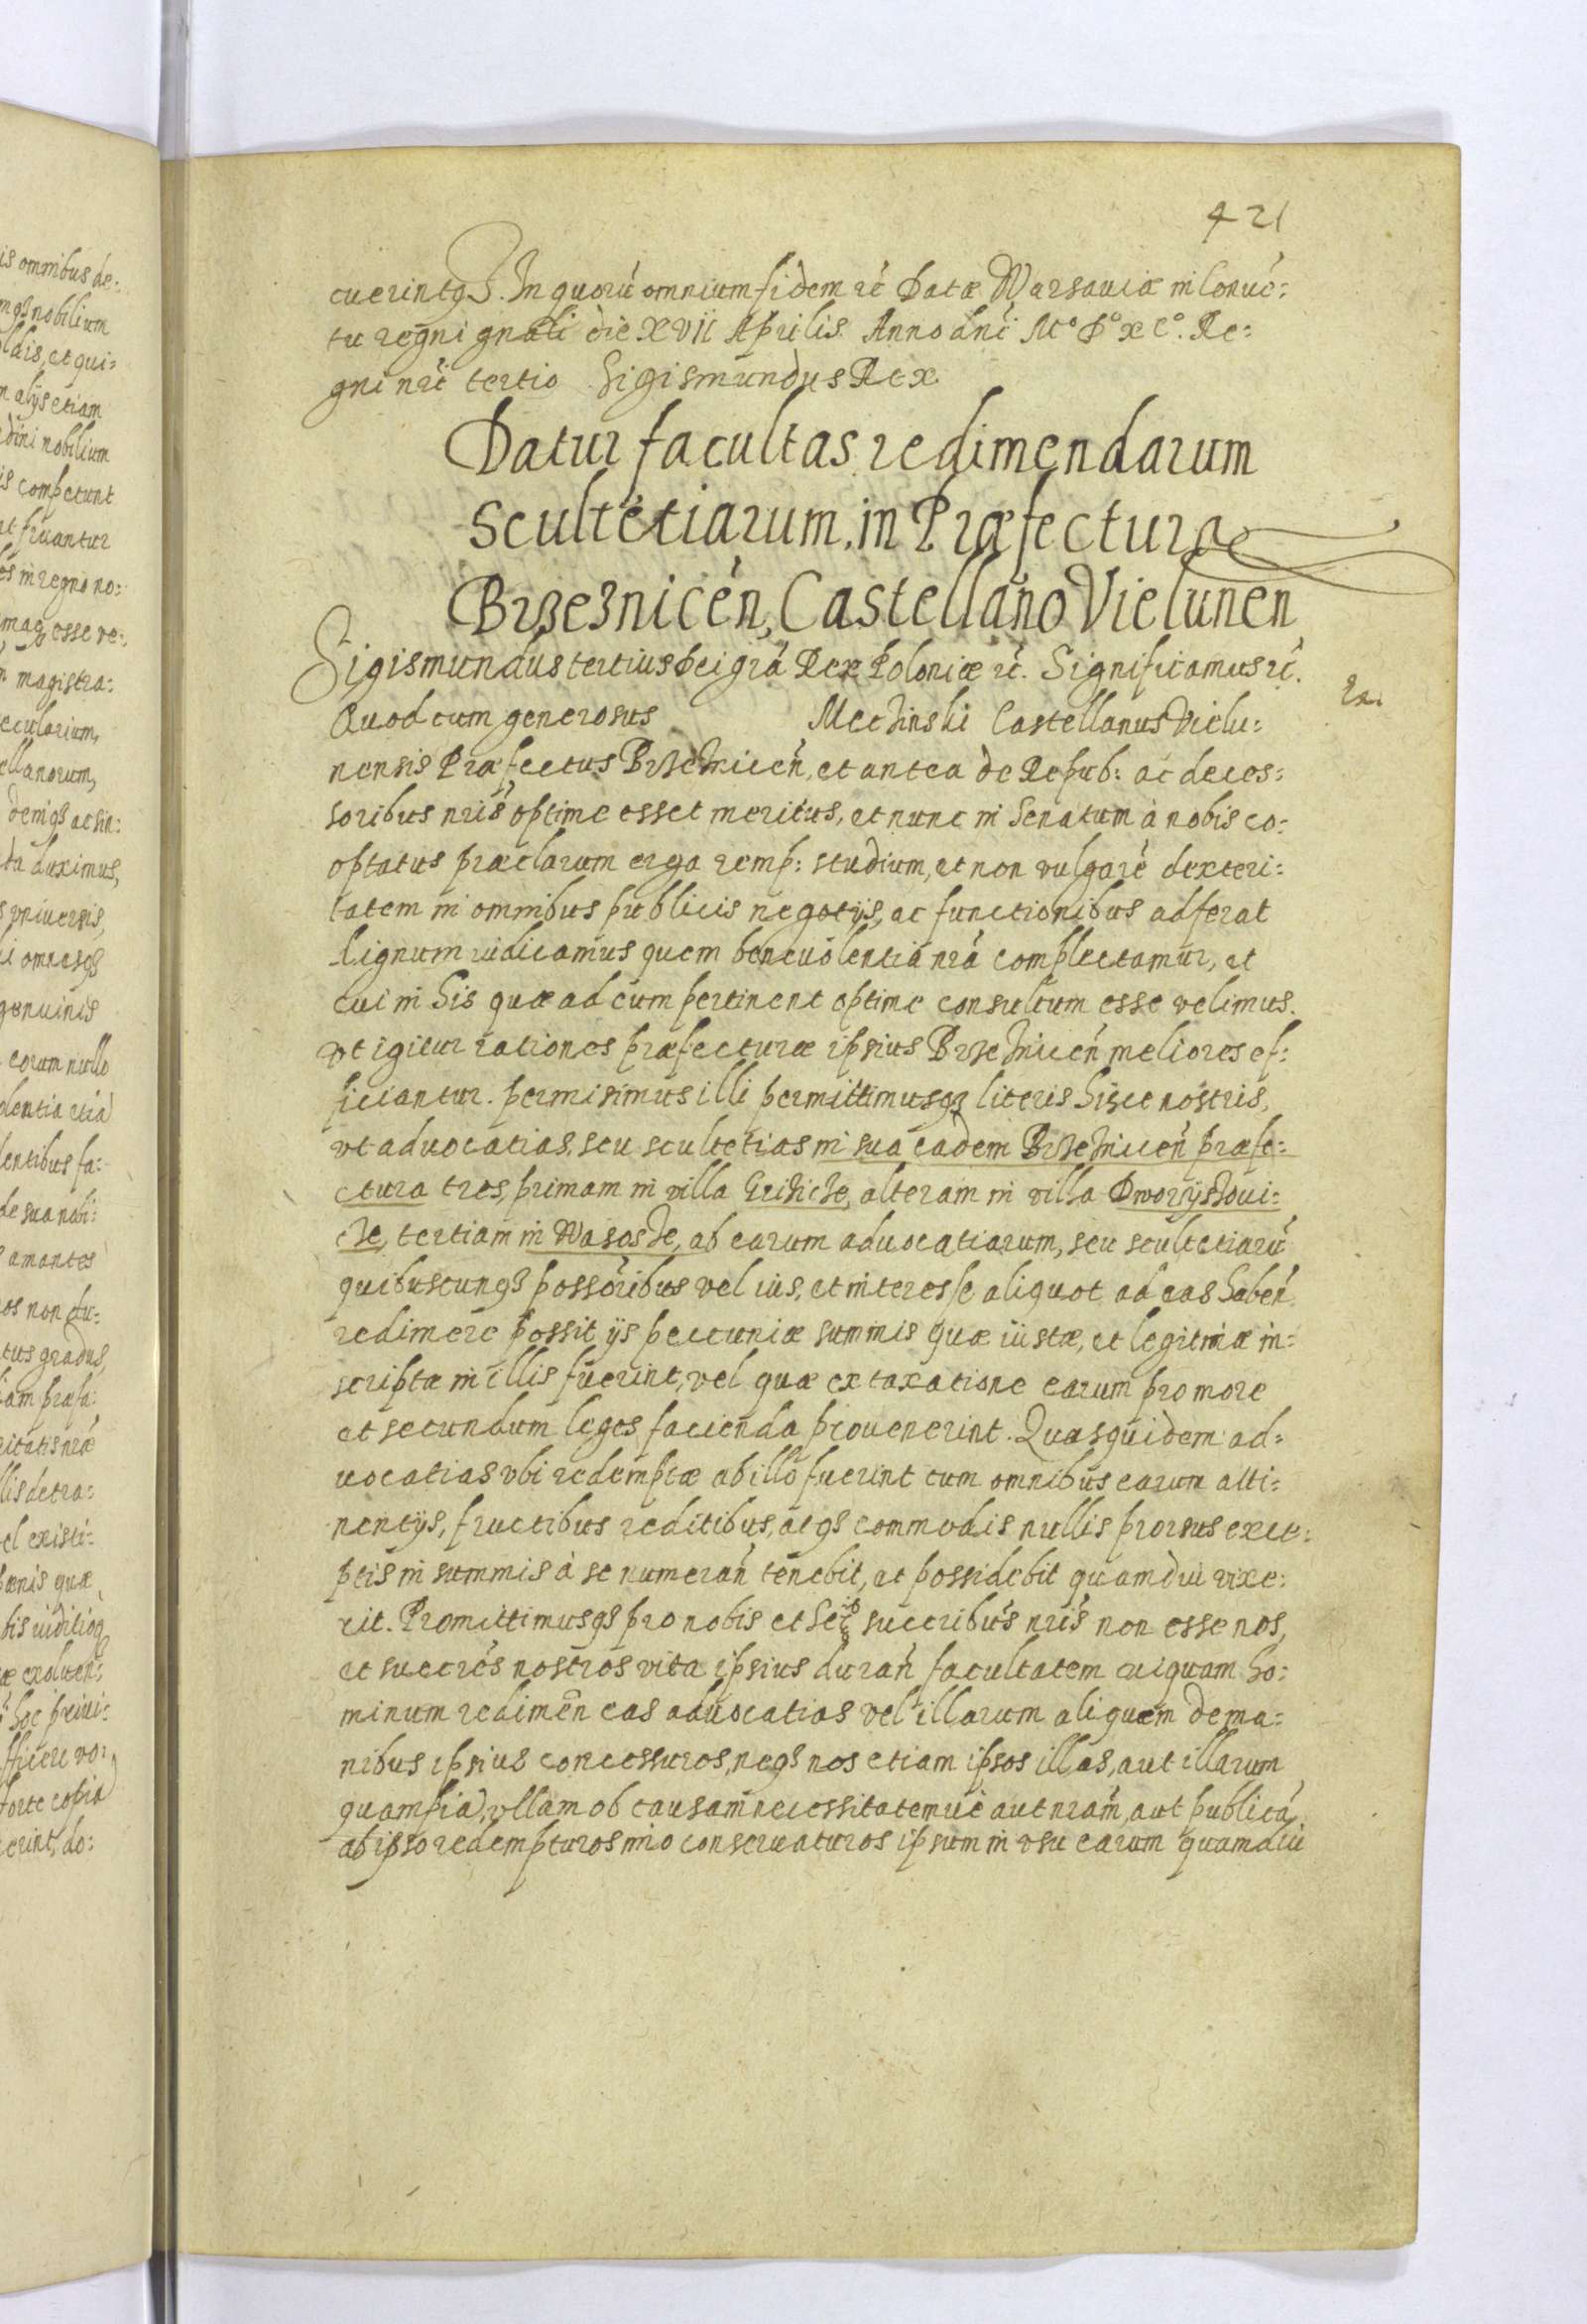 421
cuerintqȝ. In quorũ omnium fidem rẽ Datæ Warsauiæ in Conuẽ:
tu regni gnali die XVII Aprilis Anno dni M° D° xc°. Re:
gni nri tertio Sigismundus Rex
Datur facultas redimendarum
scultetiarum, in Præfectura
Brzeznicen, Castellano Vielunen
Sigismundus tertius Dei gra Rex Poloniæ rẽ. Significamus rẽ.
Quod cum generosus Meczinski Castellanus Vielu:
nensis Præfectus Brzeznicen, et antea de Repub: ac deces:
soribus nris optime esset meritus, et nunc in Senatum à nobis co:
optatus præclarum erga remp: studium, et non vulgarẽ dexteri:
tatem in omnibus publicis negotijs, ac functionibus adferat
dignum iudicamus quem beneuolentia nra complectamur, et
cui in his quæ ad eum pertinent optime consultum esse velimus.
vt igitur rationes præfecturæ ipsius Brzeznicen meliores ef:
ficiantur. permisimus illi permittimusqȝ literis hisce nostris,
vt aduocatias, seu scultetias in sua eadem Brzeznicen præfe:
ctura tres, primam in villa alteram in villa Dworijszoui:
cze, tertiam in Wasosze, ab earum aduocatiarum, seu scultetiarũ
quibuscunqȝ possoribus vel ius, et interesse aliquot ad eas haben
redimere possit ijs pecuniæ summis quæ iustæ, et legitimæ in:
scriptæ in illis fuerint, vel quæ ex taxatione earum pro more
et secundum leges facienda prouenerint. Quas quidem ad:
uocatias vbi redemptæ ab illo fuerint cum omnibus earum atti:
nentijs, fructibus reditibus, atqȝ commodis nullis prorsus exce:
ptis in summis à se numeran tenebit, et possidebit quamdiu vixe:
rit. Promittimusqȝ pro nobis et succribus nris non esse nos,
et succres nostros vita ipsius duran facultatem cuiquam ho:
minum redimen eas aduocatias vel illarum aliquam de ma:
nibus ipsius concessuros, neqȝ nos etiam ipsos illas, aut illarum
quampiã, vllam ob causam necessitatemuè aut nram, aut publicã
ab ipso redempturos imo conseruaturos ipsum in vsu earum quamdiu